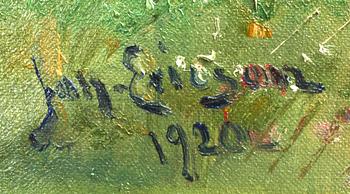 Joh. Ericson
1920